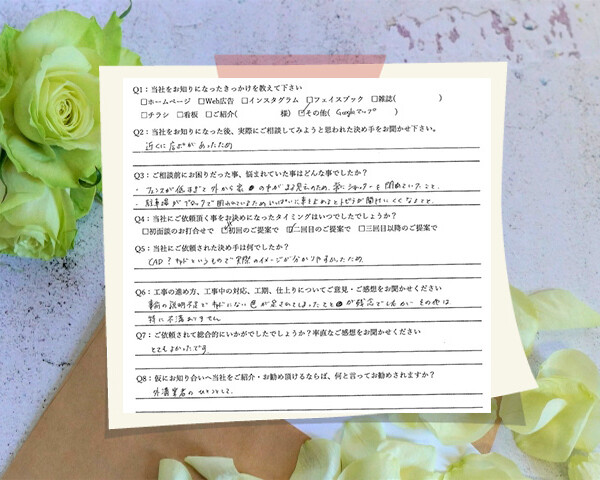 Q1：当社をお知りになったきっかけを教えて下さい
□ホームページ □Web広告 □インスタグラム □フェイスブック □雑誌( )
□チラシ □看板 □ご紹介( 様) ☑その他( Googleマップ )
Q2：当社をお知りになった後、実際にご相談してみようと思われた決め手をお聞かせ下さい。
近くに店があったため
Q3：ご相談前にお困りだった事、悩まれていた事はどんな事でしたか？
・フェンスが低すぎて外から家の中がまる見えのため、常にシャッターを閉めていたこと。
・駐車場がブロックで囲われているためいっぱいに車をとめるとトビラが開けにくくなること。
Q4：当社にご依頼頂く事をお決めになったタイミングはいつでしたでしょうか？
□初面談のお打合せで □初回のご提案で ☑二回目のご提案で □三回目以降のご提案で
Q5：当社にご依頼された決め手は何でしたか？
CAD？ というもので実際のイメージが分かりやすかったため
Q6：工事の進め方、工事中の対応、工期、仕上りについてご意見・ご感想をお聞かせください
事前の説明不足で にない色が足されてしまったことが残念でしたが その他は
特に不満ありません
Q7：ご依頼されて総合的にいかがでしたでしょうか？率直なご感想をお聞かせください
とてもよかったです。
Q8：仮にお知り合いへ当社をご紹介・お勧め頂けるならば、何と言ってお勧めされますか？
外溝業者のひとつとして。